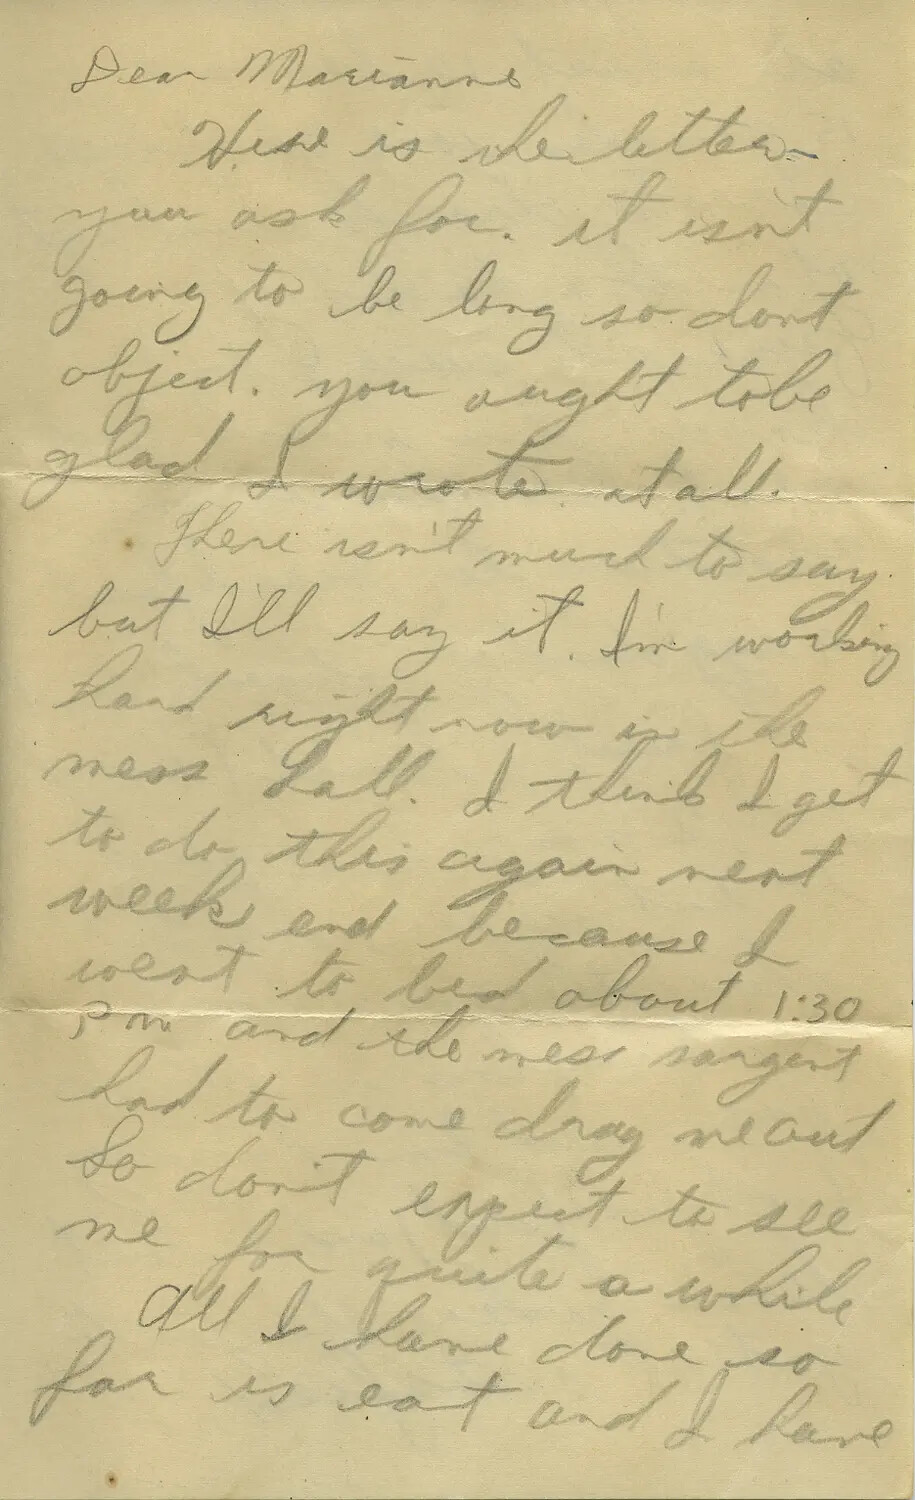 Dear Marianne
Here is the letter
you ask for. it isn't
going to be long so dont
object. you aught to be
glad I wrote at all.
There isn't much to say
but I'll say it. I'm working
hard right now in the
mess hall. I think I get
to do this again next
week end because I
went to bed about 1:30
P m and the mess sargent
had to come drag me out
So don't expect to see
me for quite a while
All I have done so
far is eat and I have